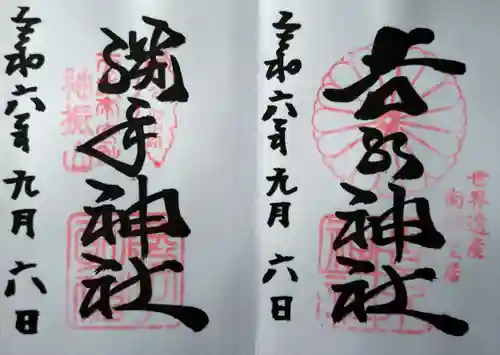 世界遺産
吉水神社
令和六年九月六日
勝手神社
袖振山
令和六年九月六日